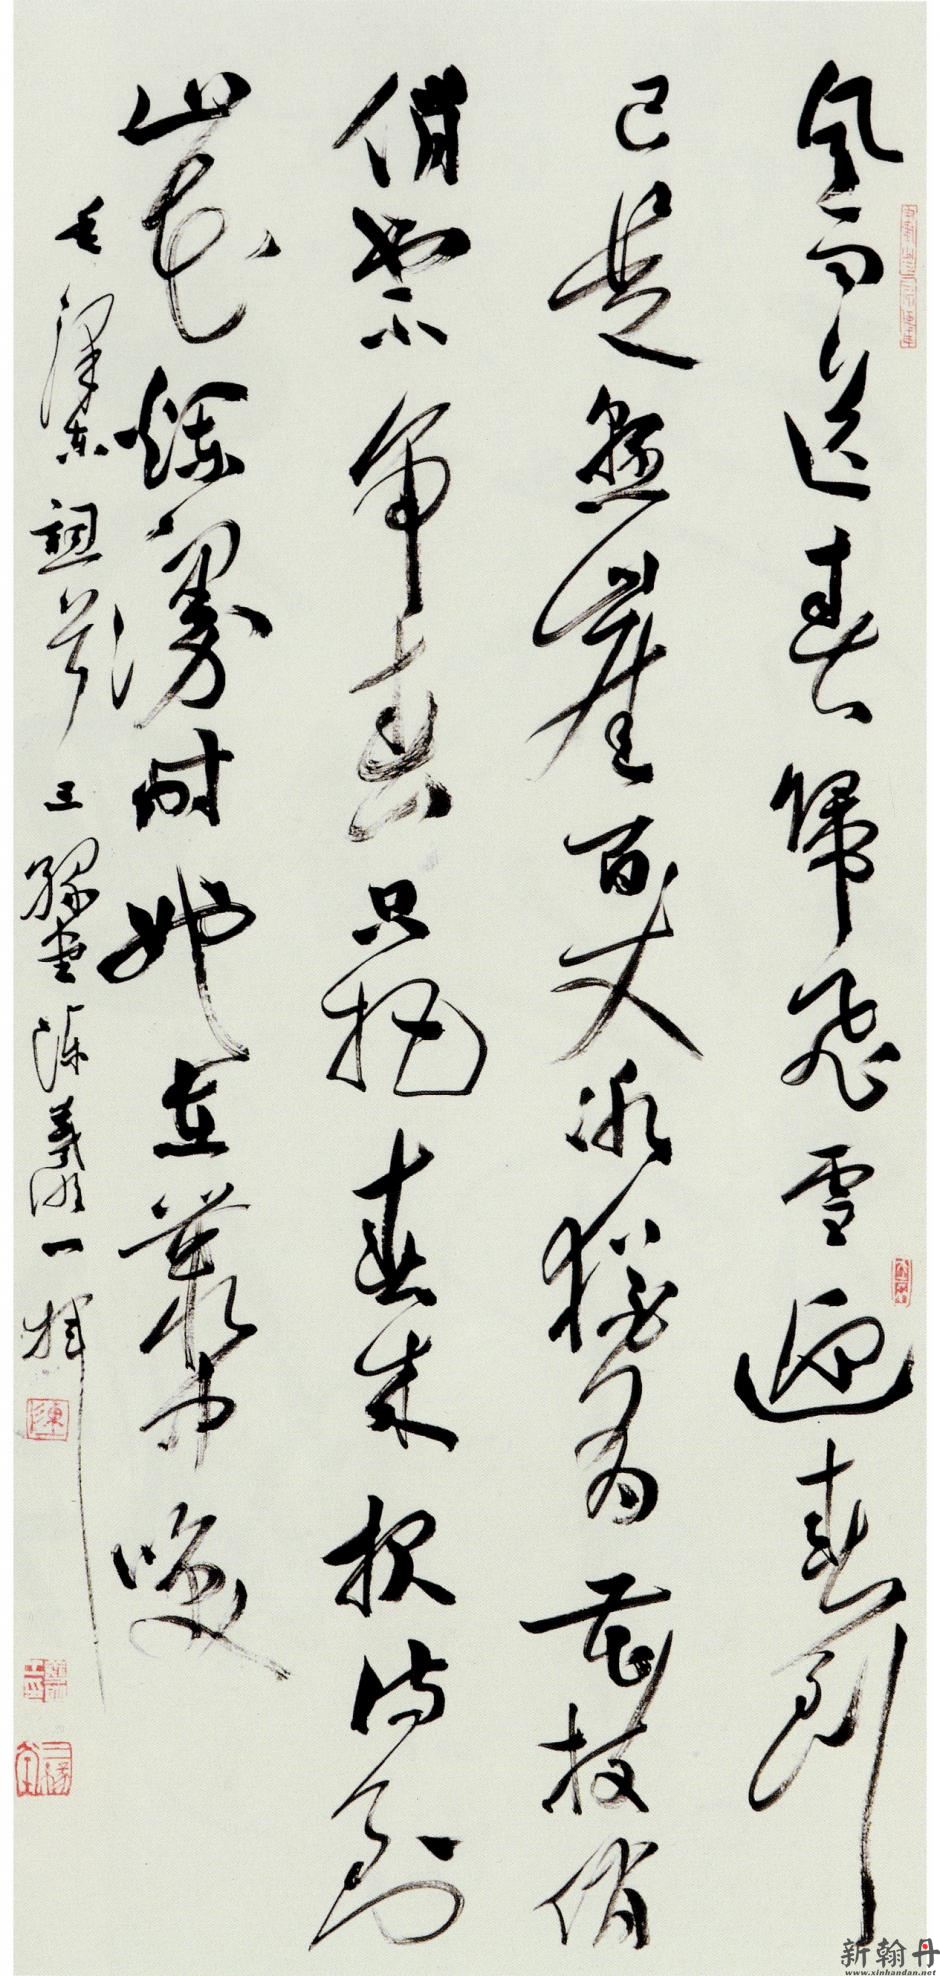 風雨送春歸飛雪迎春到
已是懸崖百丈冰猶有花枝俏
俏也不爭春只把春來報待到
山花爛漫時她在叢中咲
毛澤東詞 三緣堂陳羲明一揮
陳
新翰丹
www.xinhandan.net